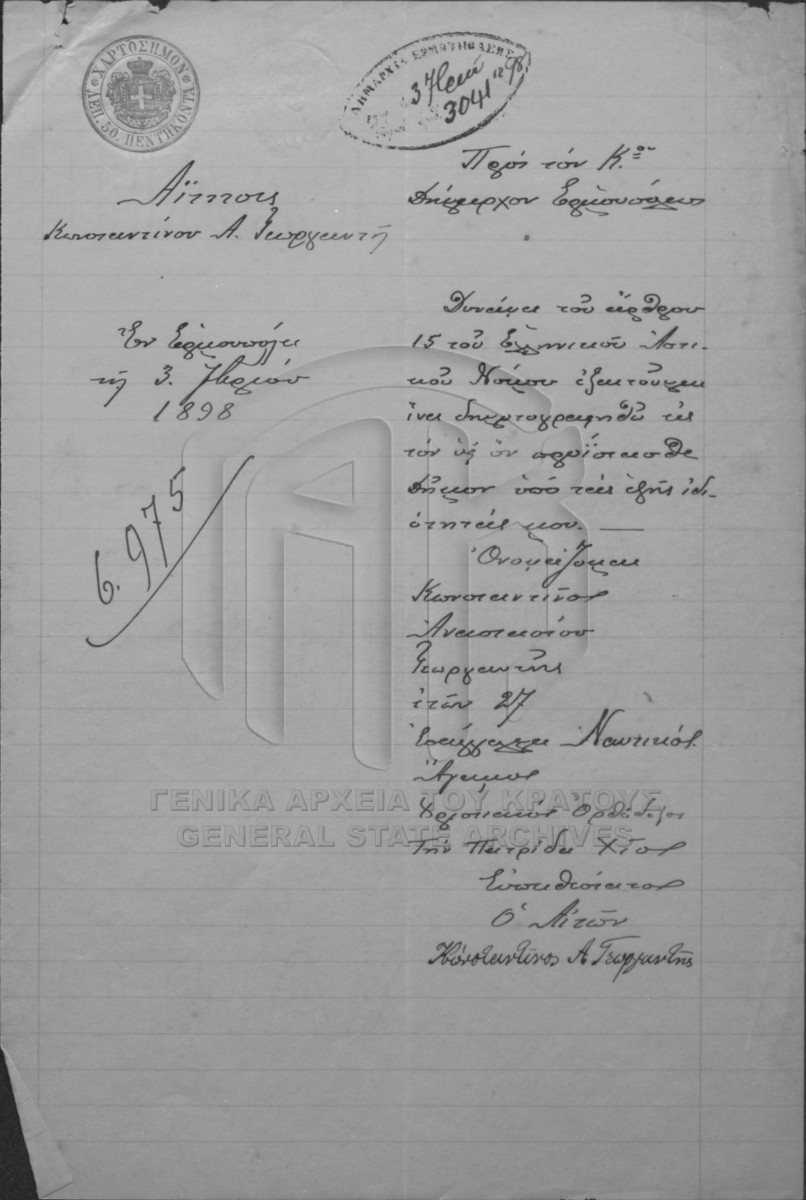 ΧΑΡΤΟΣΗΜΟΝ
ΛΕΠ. 50. ΠΕΝΤΗΚΟΝΤΑ
ΔΗΜΑΡΧΙΑ ΕΡΜΟΥΠΟΛΕΩΣ
3 7βρίου 98
3041
Αἴτησις
Κωνσταντίνου Α. Γεωργαντῆ
Ἐν Ἑρμουπόλει
τῇ 3. 7βρίου
1898
6.975
Πρός τόν Κ.ον
Δήμαρχον Ἑρμουπόλεως
Δυνάμει τοῦ ἄρθρου
15 τοῦ Ἑλληνικοῦ Ἀστι-
κοῦ Νόμου ἐξαιτοῦμαι
ἵνα δημοτογραφηθῶ εἰς
τόν ὑφ' ὅν προΐστασθε
Δῆμον ὑπό τάς ἑξῆς ἰδι-
ότητάς μου. —
Ὀνομάζομαι
Κωνσταντῖνος
Ἀναστασίου
Γεωργαντῆς
ἐτῶν 27
Ἐπάγγελμα Ναυτικός.
Ἄγαμος
Χριστιανός Ὀρθόδοξος
Τήν Πατρίδα Χῖος
Εὐπειθέστατος
Ὁ Αἰτῶν
Κωνσταντῖνος Α Γεωργαντῆς
ΓΕΝΙΚΑ ΑΡΧΕΙΑ ΤΟΥ ΚΡΑΤΟΥΣ
GENERAL STATE ARCHIVES